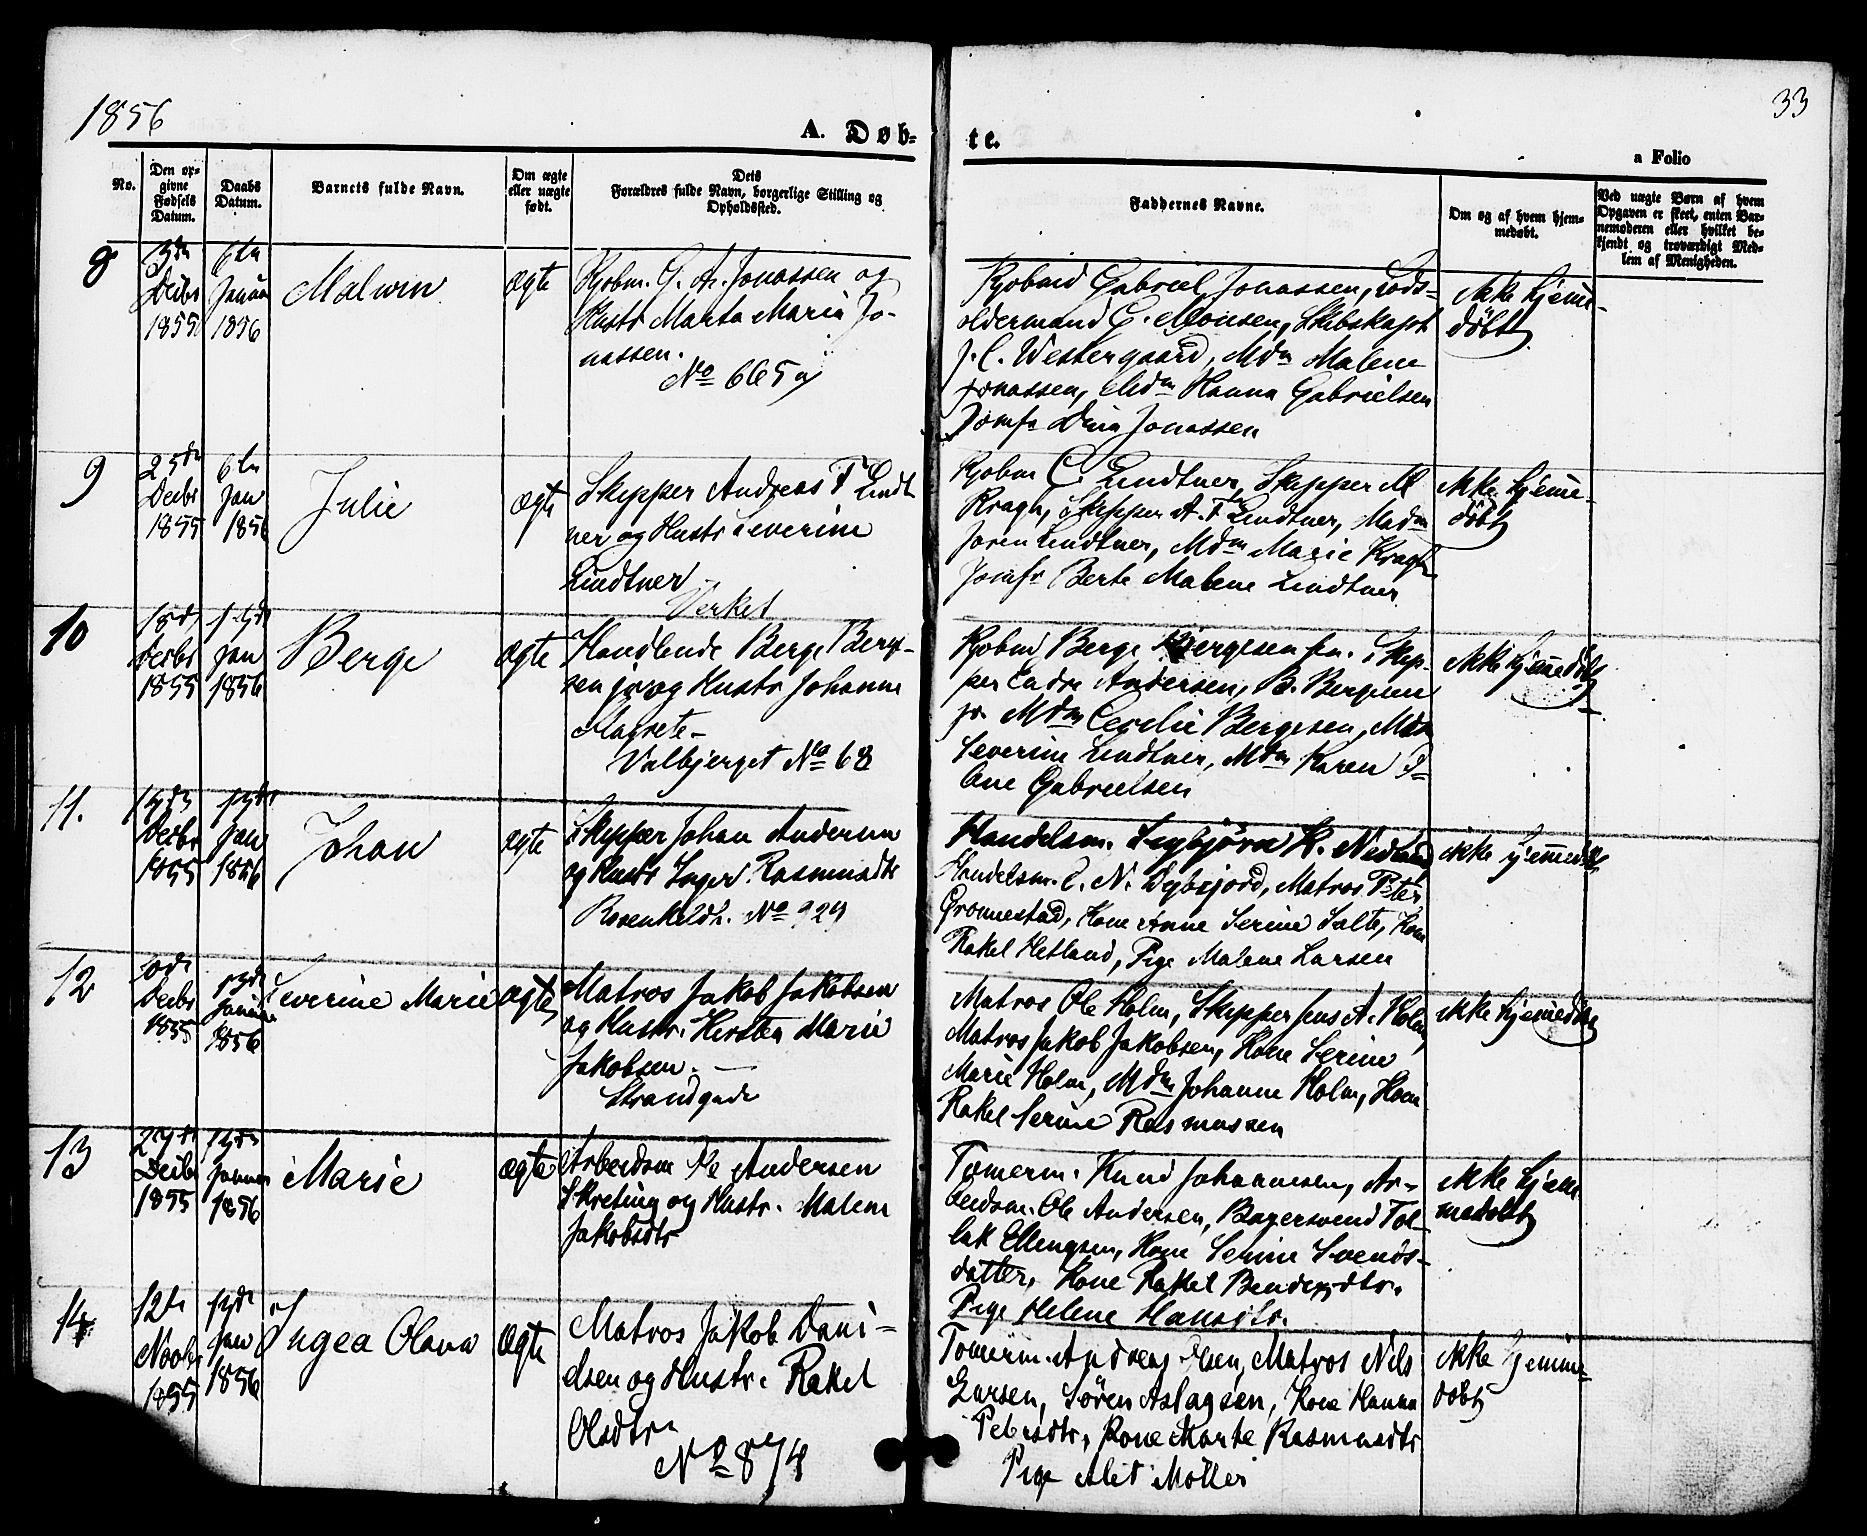 1856
33
A. Døb-
te.
a Folio
No.
Den op-
givne
Fødsels
Datum.
Daabs
Datum.
Barnets fulde Navn.
Om ægte
eller uægte
født.
Dets
Forældres fulde Navn, borgerlige Stilling og
Opholdssted.
Faddernes Navne.
Om og af hvem hjem-
medøbt.
Ved uægte Børn af hvem
Opgaven er skeet, enten Bar-
nemoderen eller hvilket be-
kjendt og troværdigt Med-
lem af Menigheden.
8
Decbr
1855
6te
Januar
1856
Malwin
ægte
Kjøbm. G. A. Jonassen og
Hustr Marta Maria Jo-
nassen.
No 665
Kjøbmd Gabriel Jonassen, Lods-
oldermand G. Monsen, Skibskapt
J. C. Westergaard, Mdm Malene
Jonassen, Mdm Hanna Gabrielsen
Jomfr Dina Jonassen
ikke hjemme-
døbt
9
25de
Decbr
1855
6te
Jan
1856
Julie
ægte
Skipper Andreas F Lindt
ner og Hustr Severine
Lindtner
Verket
Kjøbm C. Lindtner, Skipper M
Kragh, Skipper A. F Lindtner, Madm
Joren Lindtner, Mdm Marie Kragh
Jomfr Berte Malene Lindtner
ikke hjemme-
døbt
10
18de
Decbr
1855
Jan
1856
Berge
ægte
Handlende Berge Berge-
sen jr og Hustr Johanne
Margrete -
Valbjerget No 68
Kjøbmd Berge Bergesen sen. Skip-
per Endre Andersen, B. Bergesen
jr Mdm Cecilie Bergesen, Mdm
Severine Lindtner, Mdm Karen
Gabrielsen
ikke hjemmedøbt
11.
Decbr
1855
17de
Jan
1856
Johan
ægte
Skipper Johan Andersen
og Hustr Inger Rasmusdtr
Rosenkildh. No 929
Handelsm. Segbjörn K. Nedland
Handelsm. C. N. Dybsjord, Matros Peter
Gronnestad, Kone Anne Serine Salte, Kone
Rakel Hetland, Pige Malene Larsen
ikke hjemmedøbt
12
Decbr
1855
17de
Januar
1856
Severine Marie
ægte
Matros Jakob Jakobsen
og Hustr. Kirsten Marie
Jakobsen. —
Strandgade
Matros Ole Holm, Skipper Jens A. Holm,
Matros Jakob Jakobsen, Kone Serine
Marie Holm, Mdm Johanne Holm, Kone
Rakel Serine Rasmussen
ikke hjemmedøbt
13
27de
Decbr
1855
17de
Januar
1856
Marie
ægte
Arbeidsm Ole Andersen
Skreting og Hustr. Malene
Jakobsdtr
Tømerm. Knud Johannesen, Ar-
beidsm. Ole Andersen, Bagersvend Tol-
lak Ellengsen, Kone Serine Svends-
datter, Kone Rakel Bendixdtr.
Pige Helene Hansdtr.
ikke hjem
medøbt
14
12te
Novbr
1855
17de
Jan
1856
Ingea Olava
ægte
Matros Jakob Dani-
elsen og Hustr. Rakel
Olsdtr
No 874
Tømerm. Andreas Olsen, Matros Nils
Larsen, Søren Aslagsen, Kone Hanna
Petersdtr, Kone Marte Rasmusdtr
Pige Alet Møller
ikke hjemme-
døbt